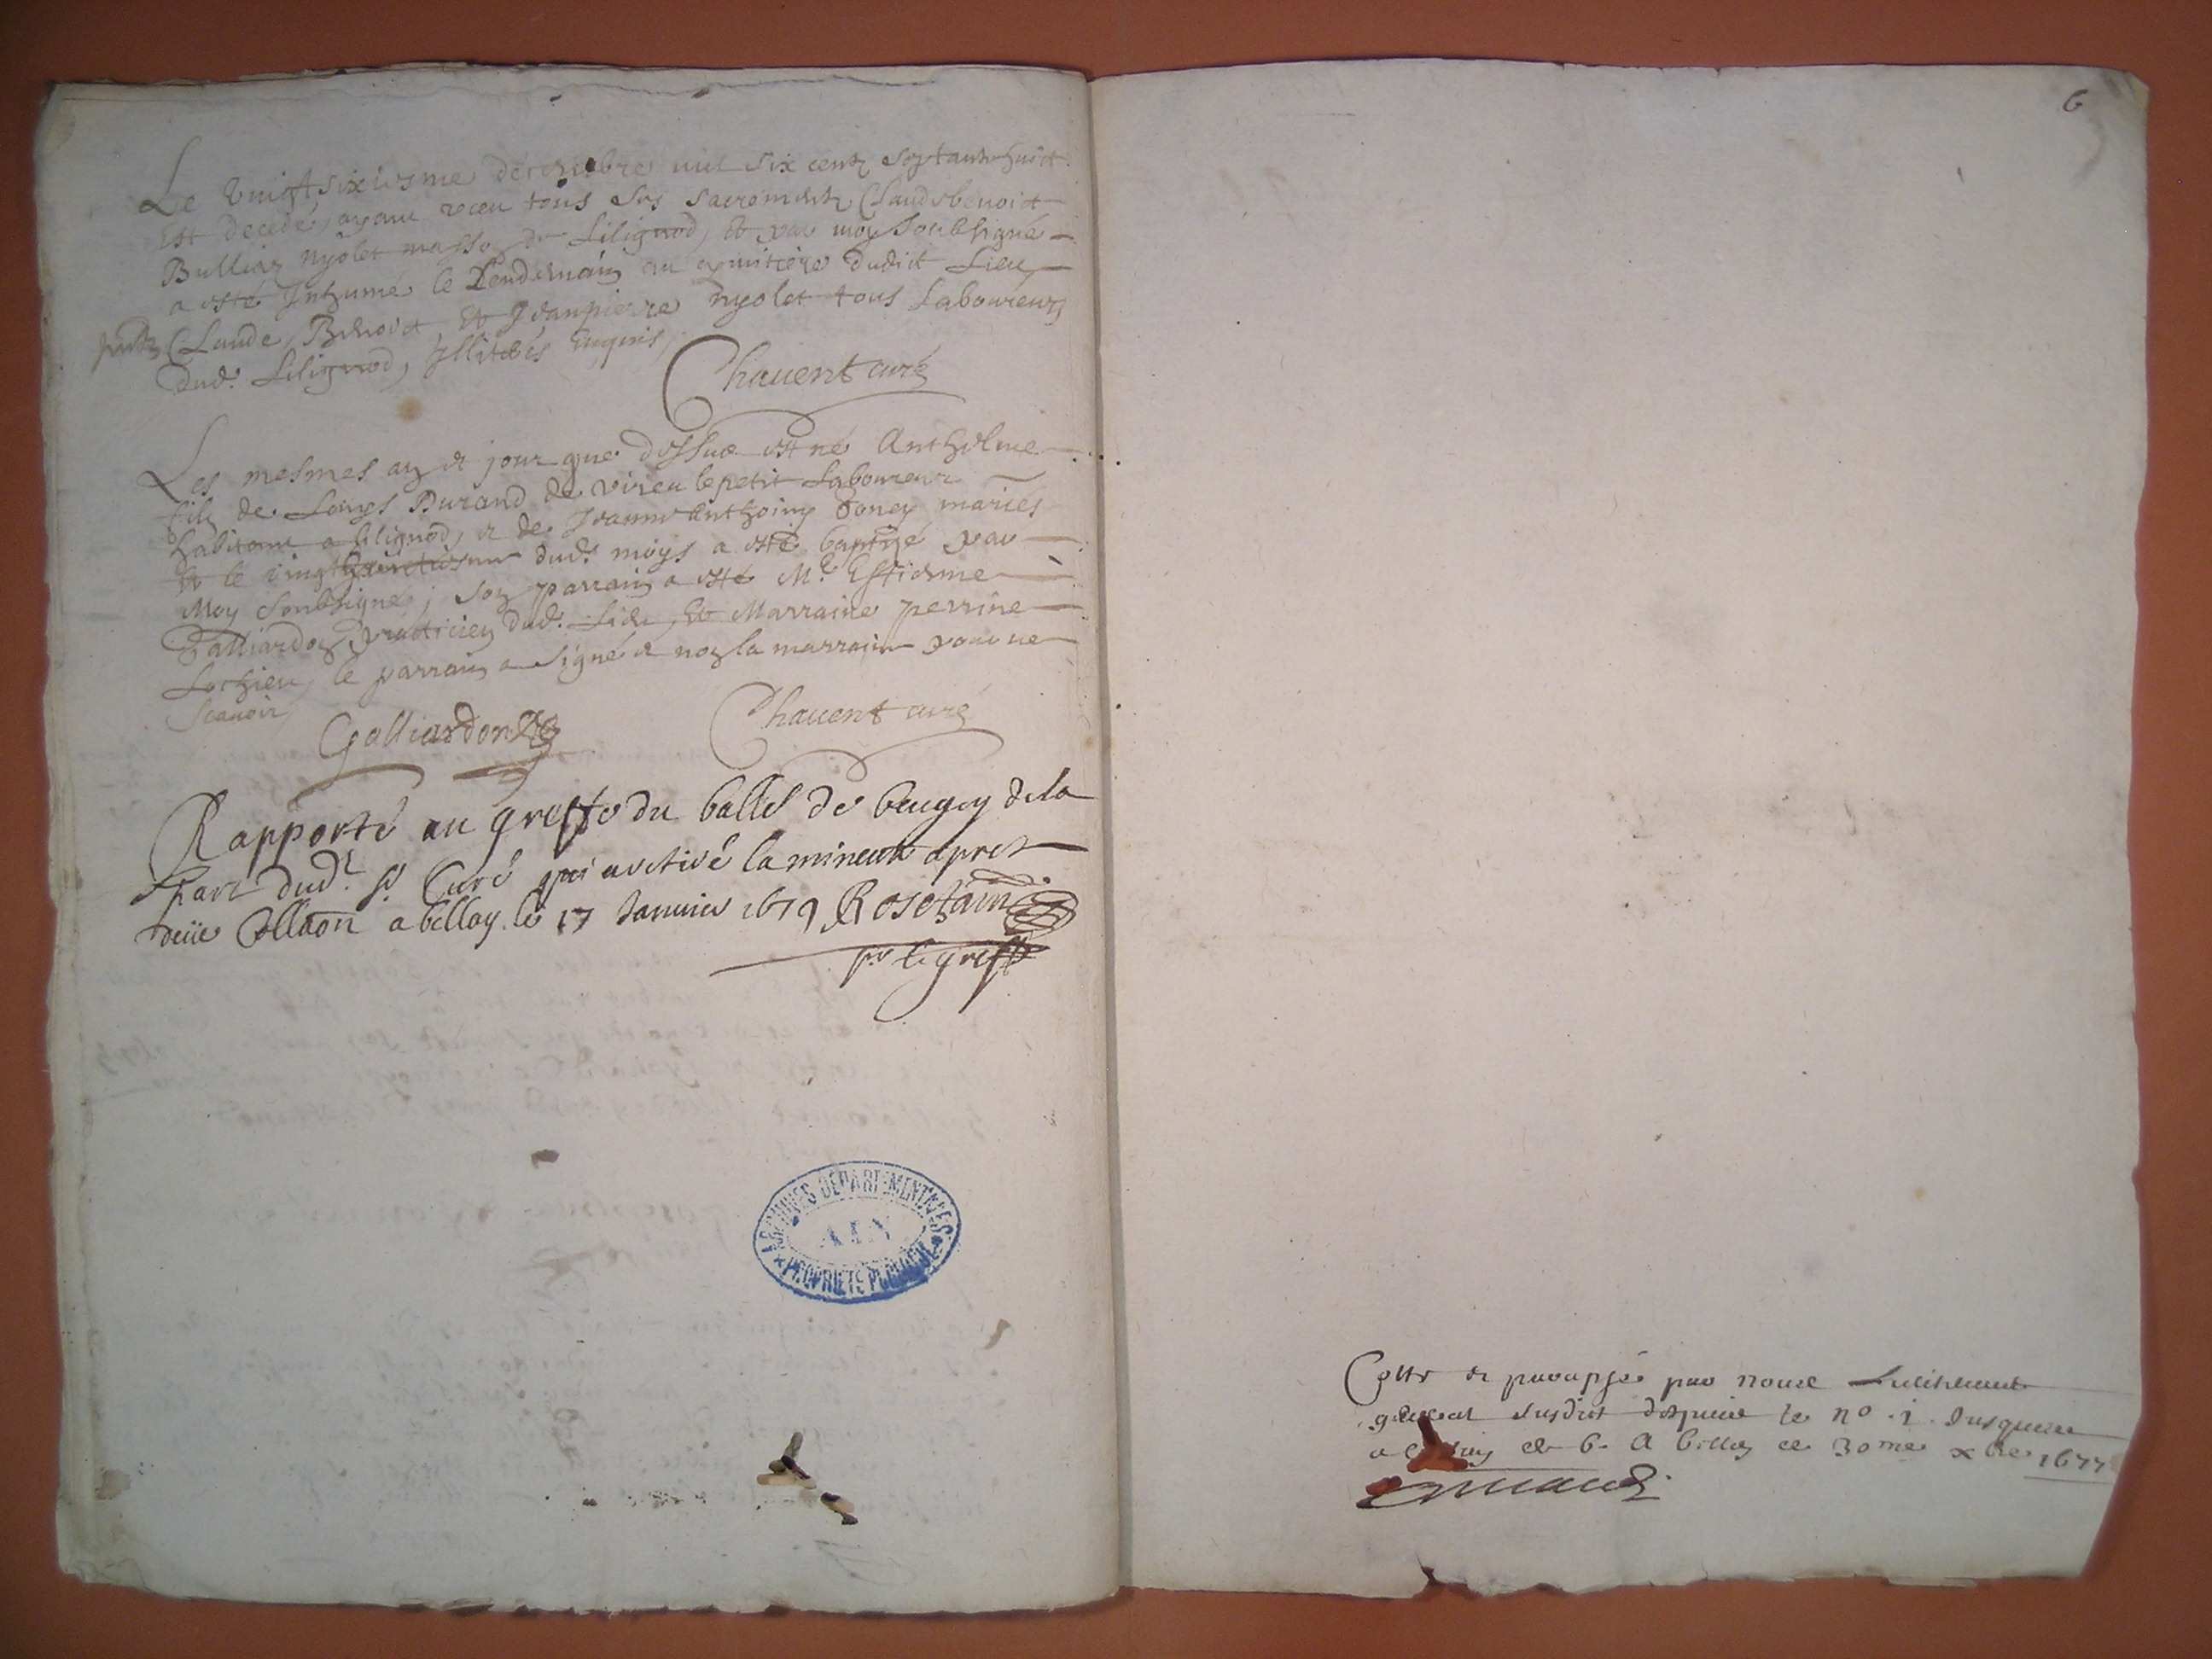 Le vingt sixiesme decembre mil six centz septante huict
Est decedé, ayant receu tous ses sacrementz Claude benoict
Bullier nyolet masson de Lilignod, et par moy soubsigné
a esté Inhumé le Lendemain au cymitiere dudict Lieu
Claude, Benoict, Et Jeanpierre nyolet tous Laboureurs
dud. Lilignod, Illiterés Enquis,
Chauent curé
Les mesmes an et jour que dessus est né Anthelme
filz de Louys Durand de vireu le petit Laboureur
habitant a lilignod, et de Jeanne Anthoine mariés
Et le vingt dud. moys a esté baptizé par
Moy soubsigné; son parrain a esté Me Estienne
Galliardon praticien dud. Lieu, Et Marraine perrine
Lochieu, le parrain a signé et non la marraine pour ne
scauoir,
Galliardon
Chauent curé
Rapporté au greffe du balle de beugey de la
part dud. sr Curé qui a retiré la mineute apres
deüe Collaon a belley le 17 Januier 1679 Rosetain
pr le greffe
ARCHIVES DEPARTEMENTALES
AIN
PROPRIETE PUBLIQUE
6
Cotté et parapfé par nous Lieutenant
general susdict despuis le no. 1. Jusques
a et 6. A belley ce 30me xbre 1677